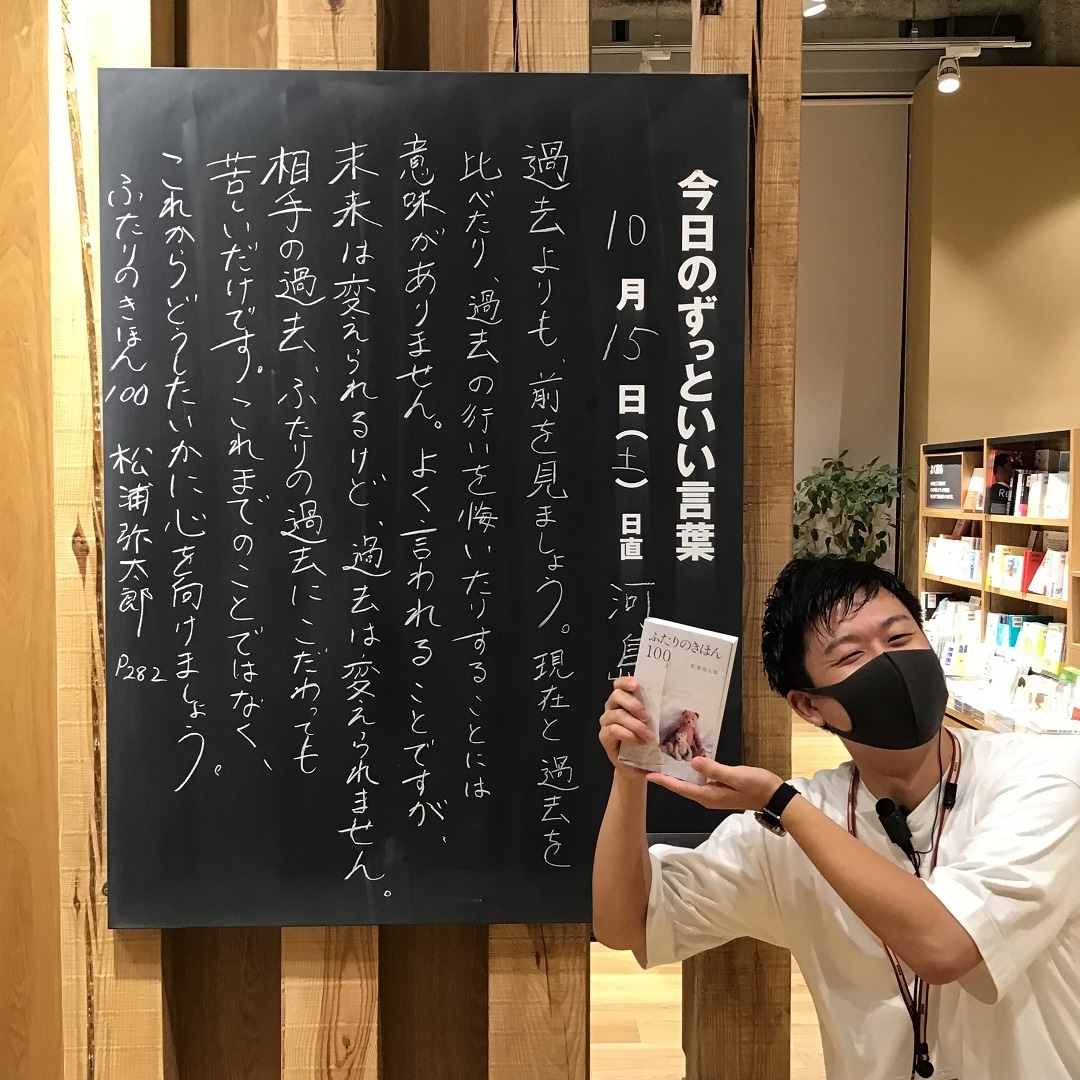 今日のずっといい言葉
10月15日(土)日直 河島
過去よりも、前を見ましょう。現在と過去を
比べたり、過去の行いを悔いたりすることには
意味がありません。よく言われることですが、
未来は変えられるけど、過去は変えられません。
相手の過去、ふたりの過去にこだわっても
苦しいだけです。これまでのことではなく、
これからどうしたいかに心を向けましょう。
ふたりのきほん100 松浦弥太郎 P282
ふたりのきほん
100
松浦弥太郎